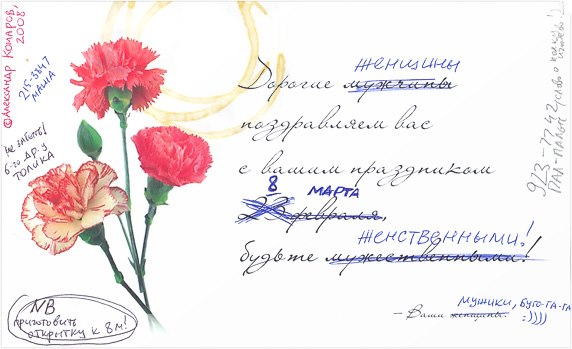 ©Александр Комаров, 2008
215-3847
МАША
НЕ ЗАБЫТЬ!
6-го Д.Р. У
ТОЛИКА
NB
ПРИГОТОВИТЬ
ОТКРЫТКУ К 8 М!
ЖЕНЩИНЫ
Дорогие мужчины
поздравляем вас
с вашим праздником
8 МАРТА
23 февраля,
ЖЕНСТВЕННЫМИ!
будьте мужественными!
МУЖИКИ, БУГО-ГА-ГА
– Ваши женщины. :))))
923-7742
ПАЛ-ПАЛЫЧ